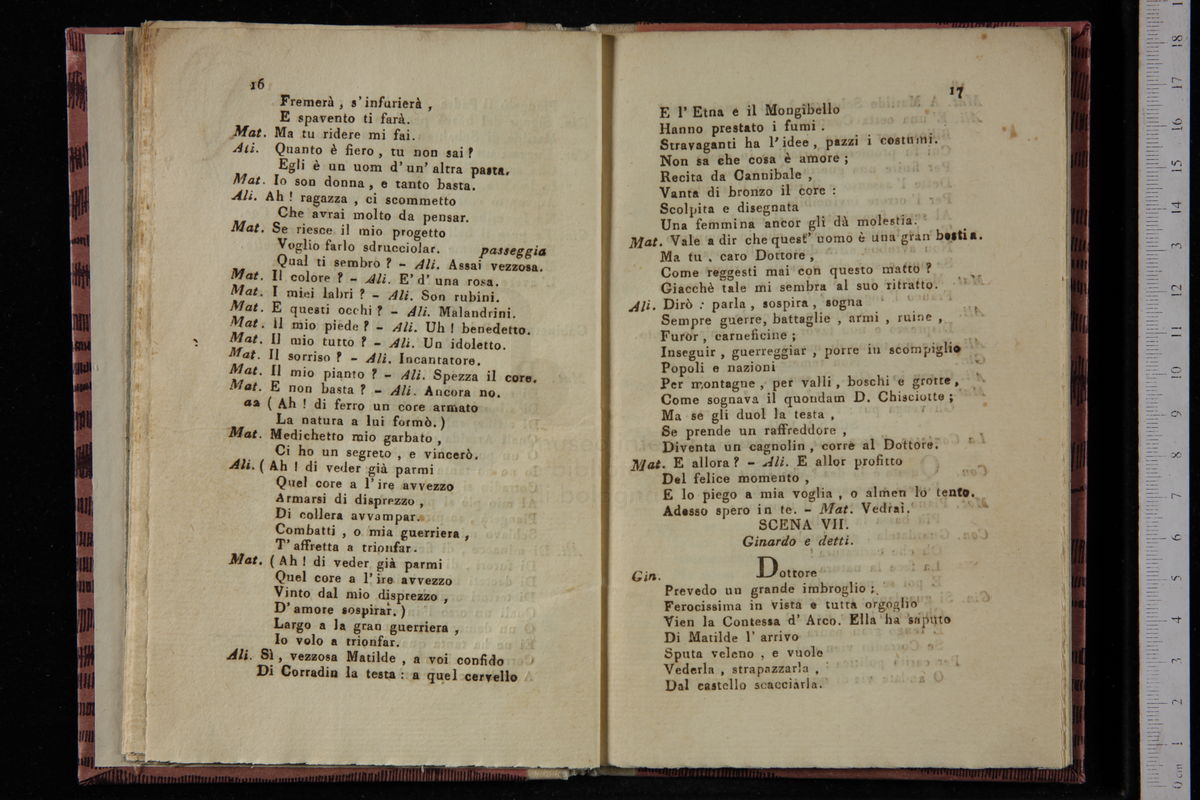 16
Fremerà, s'infurierà,
E spavento ti farà.
Mat. Ma tu ridere mi fai.
Ali. Quanto è fiero, tu non sai?
Egli è un uom d'un'altra pasta.
Mat. Io son donna, e tanto basta.
Ali. Ah! ragazza, ci scommetto
Che avrai molto da pensar.
Mat. Se riesce il mio progetto
Voglio farlo sdrucciolar. passeggia
Qual ti sembro? - Ali. Assai vezzosa.
Mat. Il colore? - Ali. E' d' una rosa.
Mat. I miei labri? - Ali. Son rubini.
Mat. E questi occhi? - Ali. Malandrini.
Mat. Il mio piede? - Ali. Uh! benedetto.
Mat. Il mio tutto? - Ali. Un idoletto.
Mat. Il sorriso? - Ali. Incantatore.
Mat. Il mio pianto? - Ali. Spezza il core.
Mat. E non basta? - Ali. Ancora no.
a2 (Ah! di ferro un core armato
La natura a lui formò.)
Mat. Medichetto mio garbato,
Ci ho un segreto, e vincerò.
Ali. (Ah! di veder già parmi
Quel core a l'ire avvezzo
Armarsi di disprezzo,
Di collera avvampar.
Combatti, o mia guerriera,
T'affretta a trionfar.
Mat. (Ah! di veder già parmi
Quel core a l'ire avvezzo
Vinto dal mio disprezzo,
D'amore sospirar.)
Largo a la gran guerriera,
Io volo a trionfar.
Ali. Sì, vezzosa Matilde, a voi confido
Di Corradin la testa: a quel cervello
17
E l'Etna e il Mongibello
Hanno prestato i fumi.
Stravaganti ha l'idee, pazzi i costumi.
Non sa che cosa è amore;
Recita da Cannibale,
Vanta di bronzo il core:
Scolpita e disegnata
Una femmina ancor gli dà molestia.
Mat. Vale a dir che quest' uomo è una gran bestia.
Ma tu, caro Dottore,
Come reggesti mai con questo matto?
Giacchè tale mi sembra al suo ritratto.
Ali. Dirò: parla, sospira, sogna
Sempre guerre, battaglie, armi, ruine,
Furor, carneficine;
Inseguir, guerreggiar, porre in scompiglio
Popoli e nazioni
Per montagne, per valli, boschi e grotte,
Come sognava il quondam D. Chisciotte;
Ma se gli duol la testa,
Se prende un raffreddore,
Diventa un cagnolin, corre al Dottore.
Mat. E allora? - Ali. E allor profitto
Del felice momento,
E lo piego a mia voglia, o almen lo tento.
Adesso spero in te. - Mat. Vedrai.
SCENA VII.
Ginardo e detti.
Gin. Dottore
Prevedo un grande imbroglio:
Ferocissima in vista e tutta orgoglio
Vien la Contessa d' Arco. Ella ha saputo
Di Matilde l' arrivo
Sputa veleno, e vuole
Vederla, strapazzarla,
Dal castello scacciarla.